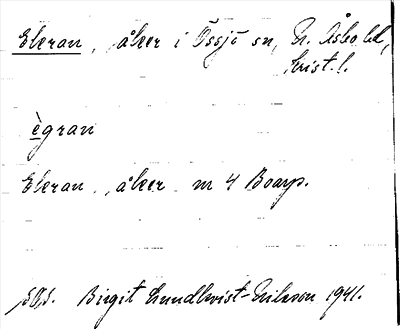 Ekeran, åker i Össjö sn, N. Åsbo hd,
Krist. l.
ègran
Ekeran, åker m 4 Boarp.
Birgit Lundkvist-Eriksson 1941.